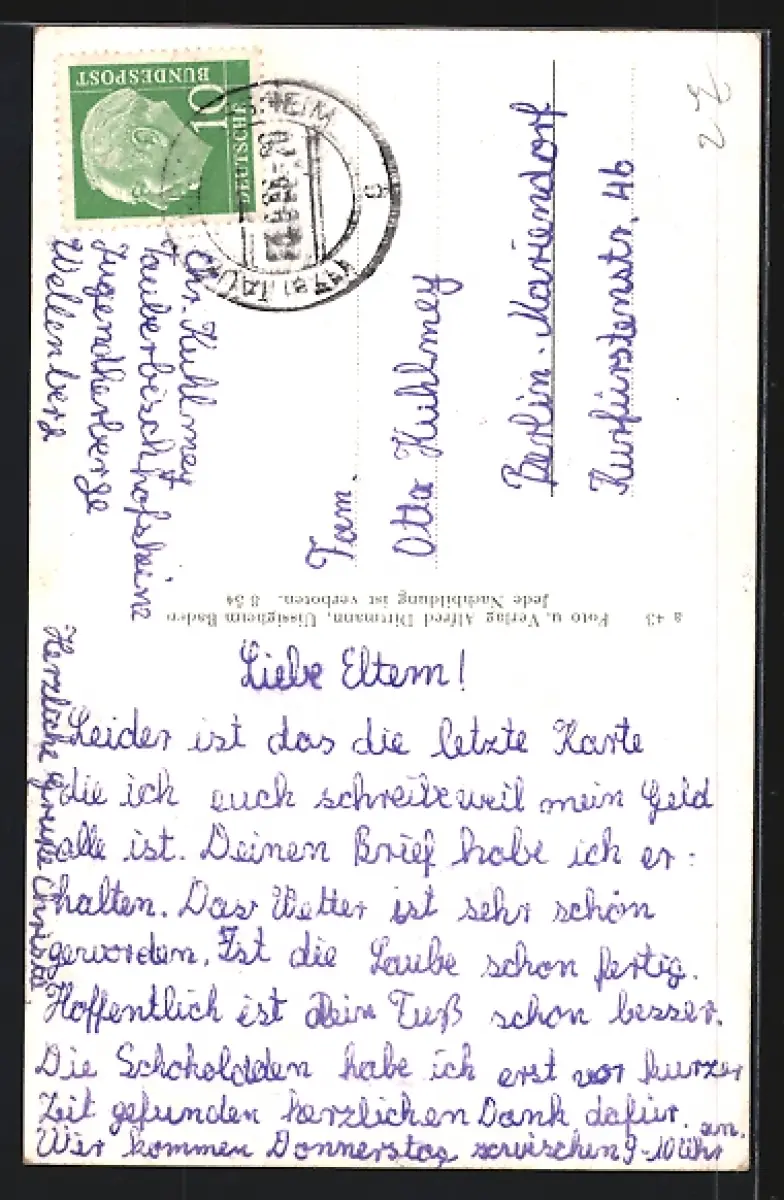 DEUTSCHE
BUNDESPOST
10
HEIM
2 E
Chr. Kuhlmey
Tauberbischhofsheim
Jugendherberge
Wellenberg
Fam.
Otto Kuhlmey
Berlin-Mariendorf
Kurfürstenstr. 46
a 43 Foto u. Verlag Alfred Dittmann, Uissigheim Baden
Jede Nachbildung ist verboten. 8 54
Liebe Eltern!
Leider ist das die letzte Karte
die ich euch schreibe weil mein Geld
alle ist. Deinen Brief habe ich er=
halten. Das Wetter ist sehr schön
geworden. Ist die Laube schon fertig.
Hoffentlich ist Dein Fuß schon besser.
Die Schokoladen habe ich erst vor kurzer
Zeit gefunden herzlichen Dank dafür.
Wir kommen Donnerstag zwischen 9-10 Uhr an.
Herzliche Grüße Christa